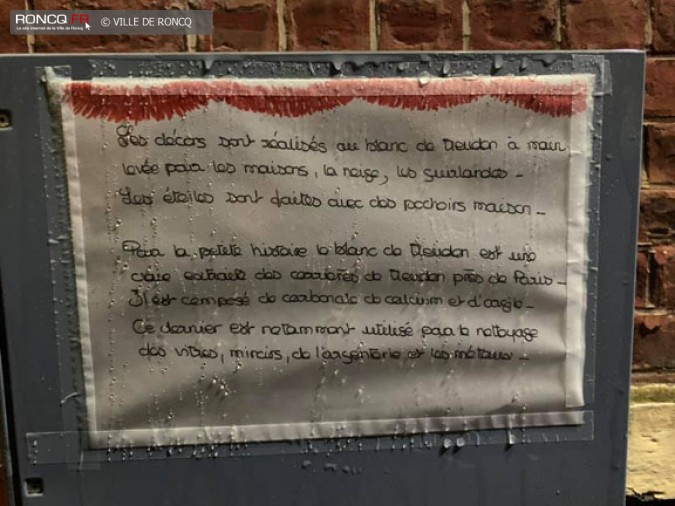 RONCQ.FR
Le site internet de la Ville de Roncq
© VILLE DE RONCQ
Les décors sont réalisés au blanc de Meudon à main
levée pour les maisons, la neige, les guirlandes -
Les étoiles sont faites avec des pochoirs maison -
Pour la petite histoire le blanc de Meudon est une
craie extraite des carrières de Meudon près de Paris -
Il est composé de carbonate de calcium et d'argile -
Ce dernier est notamment utilisé pour le nettoyage
des vitres, miroirs, de l'argenterie et les métaux -